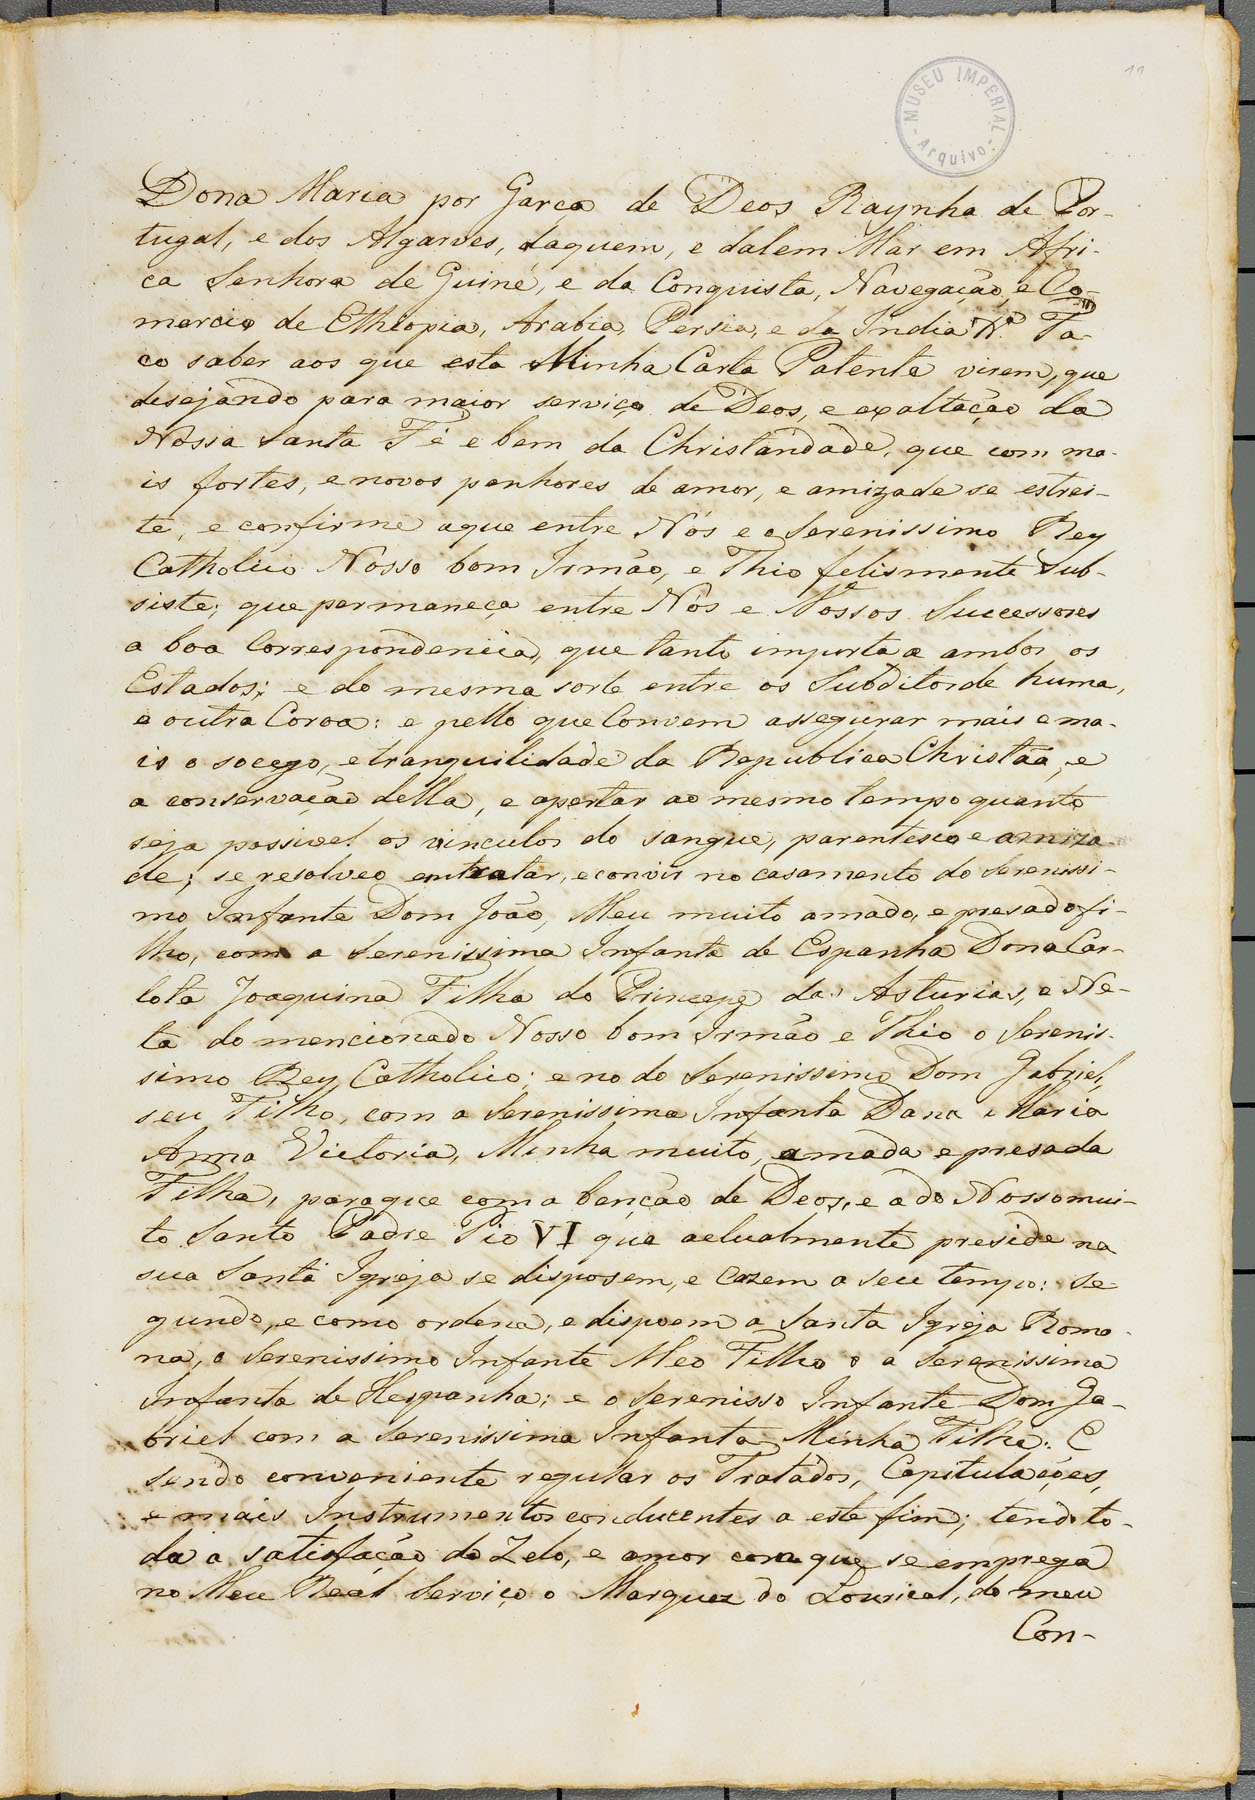 11
MUSEU IMPERIAL
Arquivo
Dona Maria por Garça de Deos Raynha de Por-
tugal, e dos Algarves, daquem, e dalem Mar em Afri-
ca Senhora de Guiné, e da Conquista, Navegação, e Co-
mercio de Ethiopia, Arabia, Persia, e da India &.ª Fa-
ço saber aos que esta Minha Carta Patente virem, que
desejando para maior serviço de Deos, e exaltação da
Nossa Santa Fé e bem da Christandade, que com ma-
is fortes, e novos penhores de amor, e amizade se estrei-
te, e confirme a que entre Nós e o Serenissimo Rey
Catholico Nosso bom Irmão, e Thio felismente Sub-
siste; que permaneça entre Nós e Nossos Successores
a boa Correspondencia, que tanto importa a ambos os
Estados; e do mesma sorte entre os Subditos de huma,
e outra Coroa: e pello que Convem assegurar mais e ma-
is o socego, e tranquilidade da Republica Christãa, e
a conservação della, e apertar ao mesmo tempo quanto
seja possivel os vinculos do sangue, parentesco e amiza-
de; se resolveo entratar, e convir no casamento do Serenissi-
mo Infante Dom João, Meu muito amado, e presado fi-
lho, com a Serenissima Infanta de Espanha Dona Car-
lota Joaquina Filha do Princepe das Asturias, e Ne-
ta do mencionado Nosso bom Irmão e Thio o Serenis-
simo Rey Catholico; e no do Serenissimo Dom Gabriel,
seu Filho, com a Serenissima Infanta Dana Maria
Anna Victoria, Minha muito, amada e presada
Filha, para que com a benção de Deos, e a do Nosso mui-
to Santo Padre Pio VI que aelualmente preside na
sua Santa Igreja se disposem, e cazem a seu tempo: se-
gundo, e como ordena, e dispoem a Santa Igreja Roma-
na, o Serenissimo Infante Meo Filho e a Serenissima
Infanta de Hespanha; e o Serenisso Infante Dom Ga-
briel com a Serenissima Infanta Minha Filha: E
sendo conveniente regular os Tratados, Capitulações,
e mais Instrumentos conducentes a este fim; tendo to-
da a satisfação do Zelo, e amor com que se emprega
no Meu Real Serviço o Marquez do Lourical, do meu
Con-